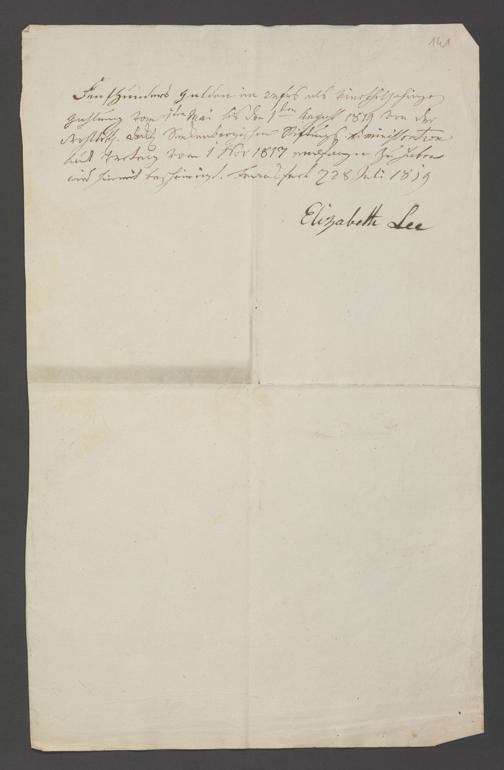 141
Fünfhundert Gulden im 24 fls als vierteljährige
Zahlung vom 1ten Mai bis den 1ten August 1819 von der
Dr. Senckenbergischen Stiftungs Administration
laut Vertrag vom 1 Nov 1817 empfangen zu haben
wird hiermit bescheinigt. Frankfurt 28 Juli 1819
Elizabeth Lee